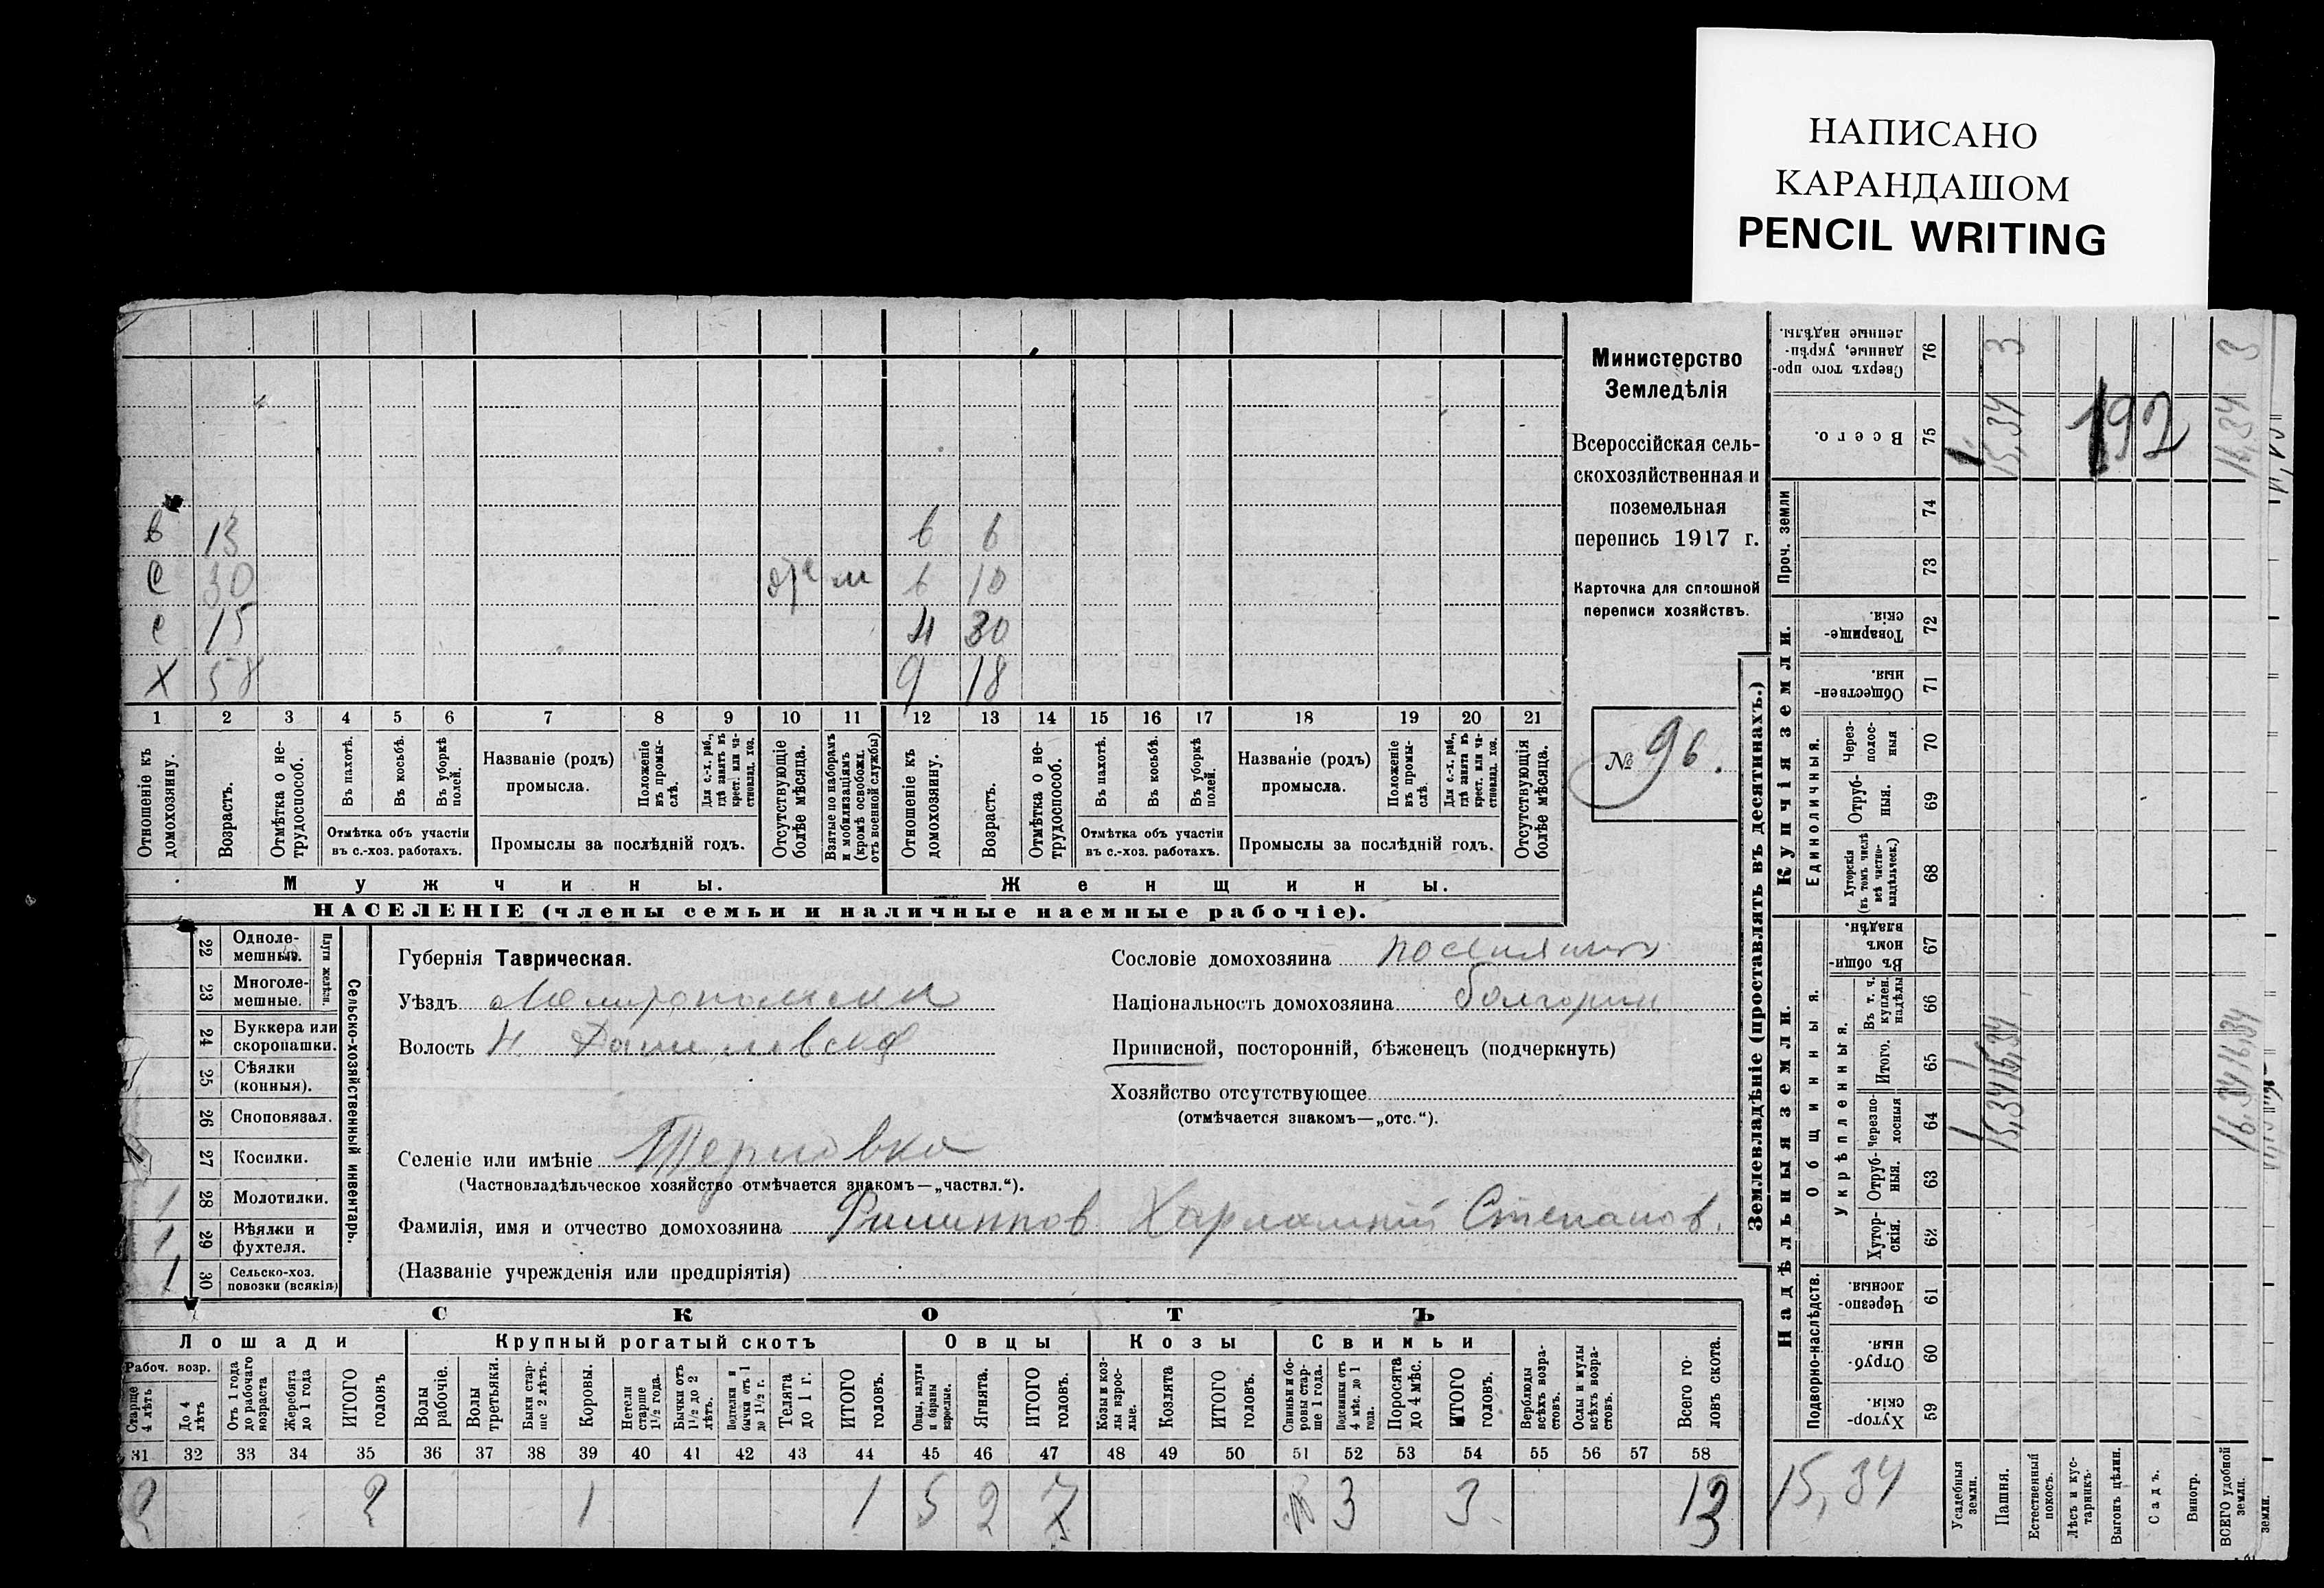 НАПИСАНО
КАРАНДАШОМ
PENCIL WRITING
Министерство
Земледѣлія
Всероссійская сель-
скохозяйственная и
поземельная
перепись 1917 г.
Карточка для сплошной
переписи хозяйствъ.
№ 96.
в 13 в 6
с 30 м в 10
с 15 30
х 58 18
1 2 3 4 5 6 7 8 9 10 11 12 13 14 15 16 17 18 19 20 21
Отношеніе къ домохозяину.
Возрастъ.
Отмѣтка о не-трудоспособ.
Въ пахотѣ.
Въ косьбѣ.
Въ уборкѣ полей.
Отмѣтка объ участіи
въ с.-хоз. работахъ.
Названіе (родъ)
промысла.
Положеніе въ промы-слѣ.
Для с.-х. раб., гдѣ занятъ въ крест. или ча-стновлад. хоз.
Промыслы за послѣдній годъ.
Отсутствующіе болѣе мѣсяца.
Взятые по наборамъ и мобилизаціямъ (кромѣ освобожд. отъ военной службы)
Отношеніе къ домохозяину.
Возрастъ.
Отмѣтка о не-трудоспособ.
Въ пахотѣ.
Въ косьбѣ.
Въ уборкѣ полей.
Отмѣтка объ участіи
въ с.-хоз. работахъ.
Названіе (родъ)
промысла.
Положеніе въ промы-слѣ.
Для с.-х. раб., гдѣ занята въ крест. или ча-стновлад. хоз.
Промыслы за послѣдній годъ.
Отсутствующія болѣе мѣсяца.
Мужчины. Женщины.
НАСЕЛЕНІЕ (члены семьи и наличные наемные рабочіе).
Сельско-хозяйственный инвентарь.
Плуги желѣзн.
22 Одноле-
мешные.
23 Многоле-
мешные.
24 Буккера или
скоропашки.
25 Сѣялки
(конныя).
26 Сноповязал.
1 27 Косилки.
1 28 Молотилки.
1 29 Вѣялки и
фухтеля.
1 30 Сельско-хоз.
повозки (всякія)
Губернія Таврическая.
Уѣздъ Мелитопольский
Волость Н. Даниловская
Селеніе или имѣніе Терновка
(Частновладѣльческое хозяйство отмѣчается знакомъ—„частвл.“).
Фамилія, имя и отчество домохозяина Филиппов Харлампий Степанов.
(Названіе учрежденія или предпріятія)
Сословіе домохозяина поселянин
Національность домохозяина болгарин
Приписной, посторонній, бѣженецъ (подчеркнуть)
Хозяйство отсутствующее
(отмѣчается знакомъ—„отс.“).
СКОТЪ
Лошади Крупный рогатый скотъ Овцы Козы Свиньи
Рабоч. возр.
Старше 4 лѣтъ
До 4 лѣтъ
Отъ 1 года до рабочаго возраста
Жеребята до 1 года
ИТОГО головъ
Волы рабочіе.
Волы третьяки.
Быки стар-ше 2 лѣтъ.
Коровы.
Нетели старше 1½ года.
Бычки отъ 1½ до 2 лѣтъ.
Подтелки и бычки отъ 1 до 1½ г.
Телята до 1 г.
ИТОГО головъ.
Овцы, валухи и бараны взрослые.
Ягнята.
ИТОГО головъ.
Козы и коз-лы взрос-лые.
Козлята
ИТОГО головъ.
Свиньи и бо-ровы стар-ше 1 года.
Подсвинки отъ 4 мѣс. до 1 года.
Поросята до 4 мѣс.
ИТОГО головъ.
Верблюды всѣхъ возра-стовъ.
Ослы и мулы всѣхъ возра-стовъ.
Всего го-ловъ скота.
31 32 33 34 35 36 37 38 39 40 41 42 43 44 45 46 47 48 49 50 51 52 53 54 55 56 57 58
2 2 1 1 5 2 7 3 3 13
Землевладѣніе (проставлять въ десятинахъ.)
Надѣльныя земли. Купчія земли. Проч. земли
Подворно-наслѣдств.
Общинныя.
Укрѣпленныя.
Единоличныя.
Хутор-скія. 59
Отруб-ныя. 60
Черезпо-лосныя 61
Хутор-скія. 62
Отруб-ныя. 63
Черезпо-лосныя 64
Итого. 65
Въ т. ч. куплен. надѣлы 66
Въ общин-номъ владѣн. 67
Хуторскія (въ томъ числѣ всѣ частно-владѣльческ.) 68
Отруб-ныя. 69
Через-полос-ныя 70
Обществен-ныя. 71
Товарище-скія. 72
73
74
Всего. 75
Сверхъ того про-данные, укрѣп-ленные надѣлы. 76
15,34
Усадебныя земли. 1 1 1
Пашня. 15,34 15,34 15,34 3
Естественный покосъ.
Лѣсъ и кус-тарникъ.
Выгонъ цѣлин.
Садъ.
Виногр.
ВСЕГО удобной земли. 16,34 16,34 16,34 3
земли.
192